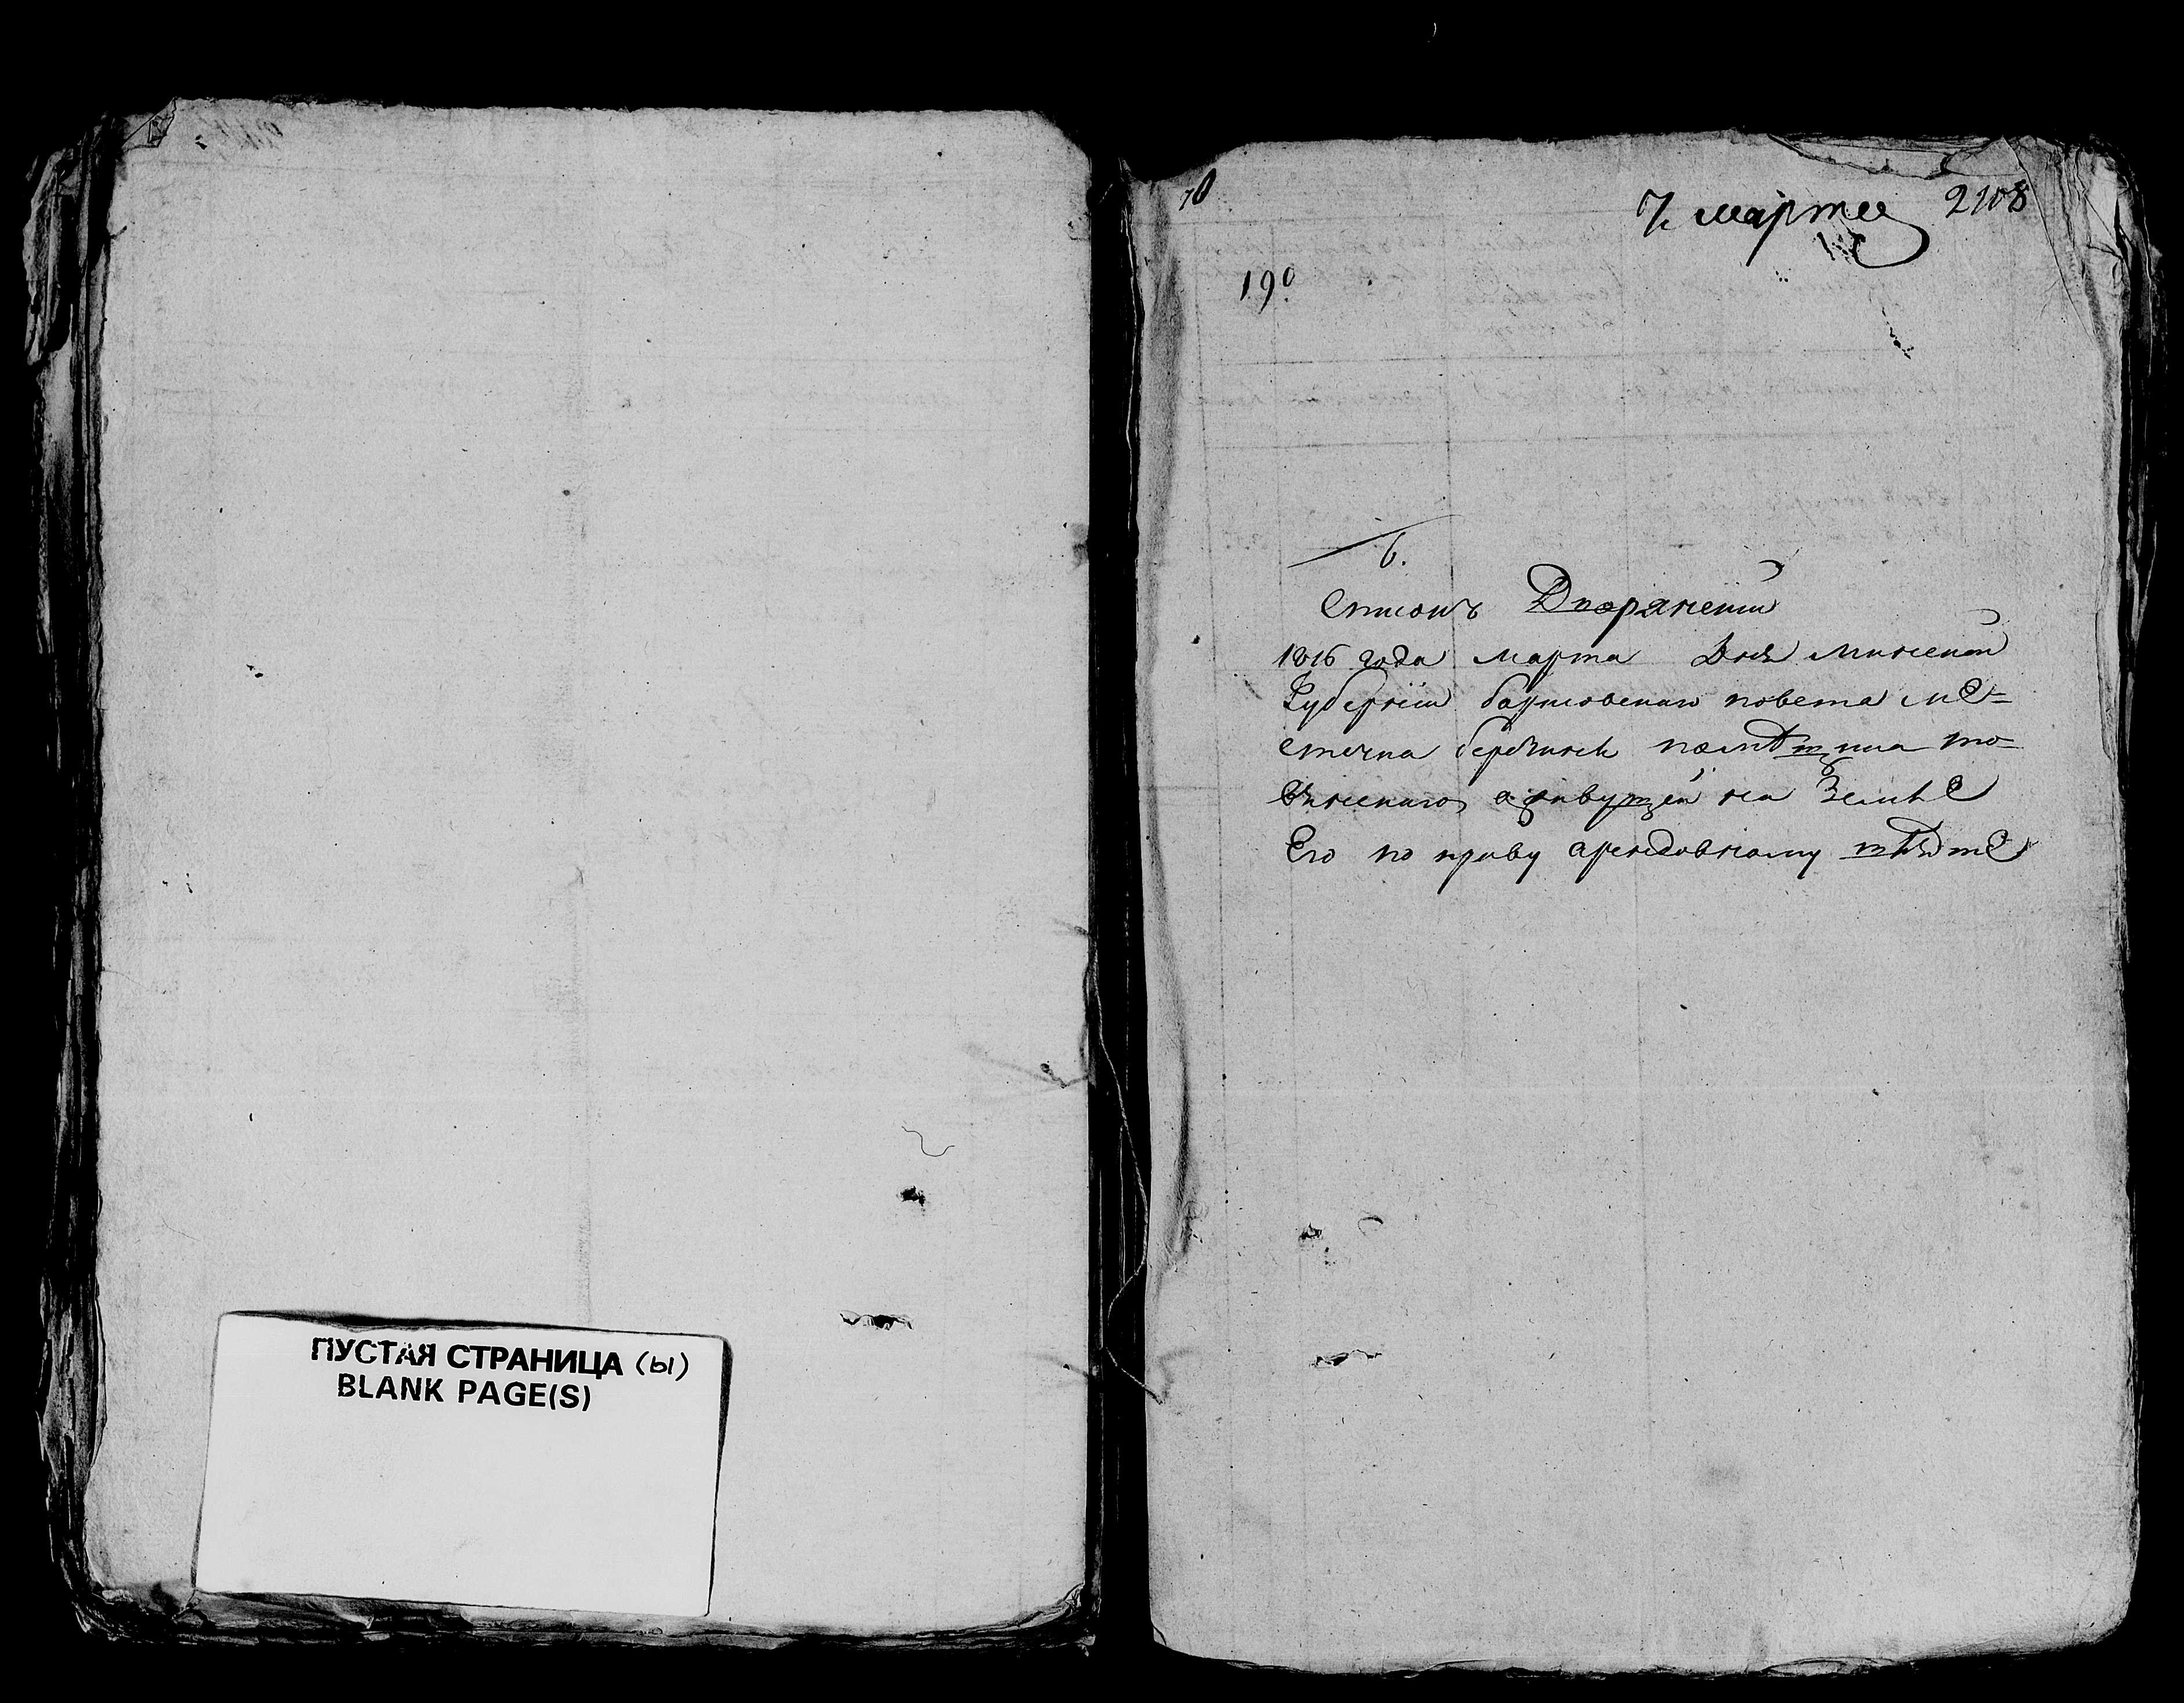 ПУСТАЯ СТРАНИЦА (ы)
BLANK PAGE(S)
7. марта 2108
190
6.
Списокъ Дворянский
1816 года марта Дня Минской
Губернии борисовского повета ме=
стечка березины помѣщика
живущей на Землѣ
Его по праву арендовному